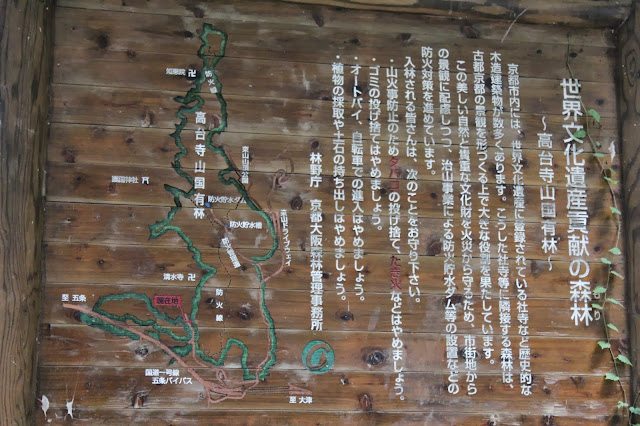 世界文化遺産貢献の森林
もり
～高台寺山国有林～
京都市内には、世界文化遺産に登録されている社寺など歴史的な
木造建築物が数多くあります。こうした社寺等に隣接する森林は、
古都京都の景観を形づくる上で大きな役割を果たしています。
この美しい自然と貴重な文化財を火災から守るため、市街地から
の景観に配慮しつつ、治山事業による防火貯水ダム等の設置などの
防火対策を進めています。
入林される皆さんは、次のことをお守り下さい。
・山火事防止のためタバコの投げ捨て、たき火などはやめましょう。
・ゴミの投げ捨てはやめましょう。
・オートバイ、自転車での進入はやめましょう。
・植物の採取や土石の持ち出しはやめましょう。
林野庁 京都大阪森林管理事務所
知恩院
防火線
高台寺山国有林
東山山頂公園
護国神社
防火貯水ダム
防火貯水槽
東山ドライブウェイ
防火管理道
清水寺
防火線
現在地
至 五条
国道一号線
五条バイパス
至 大津